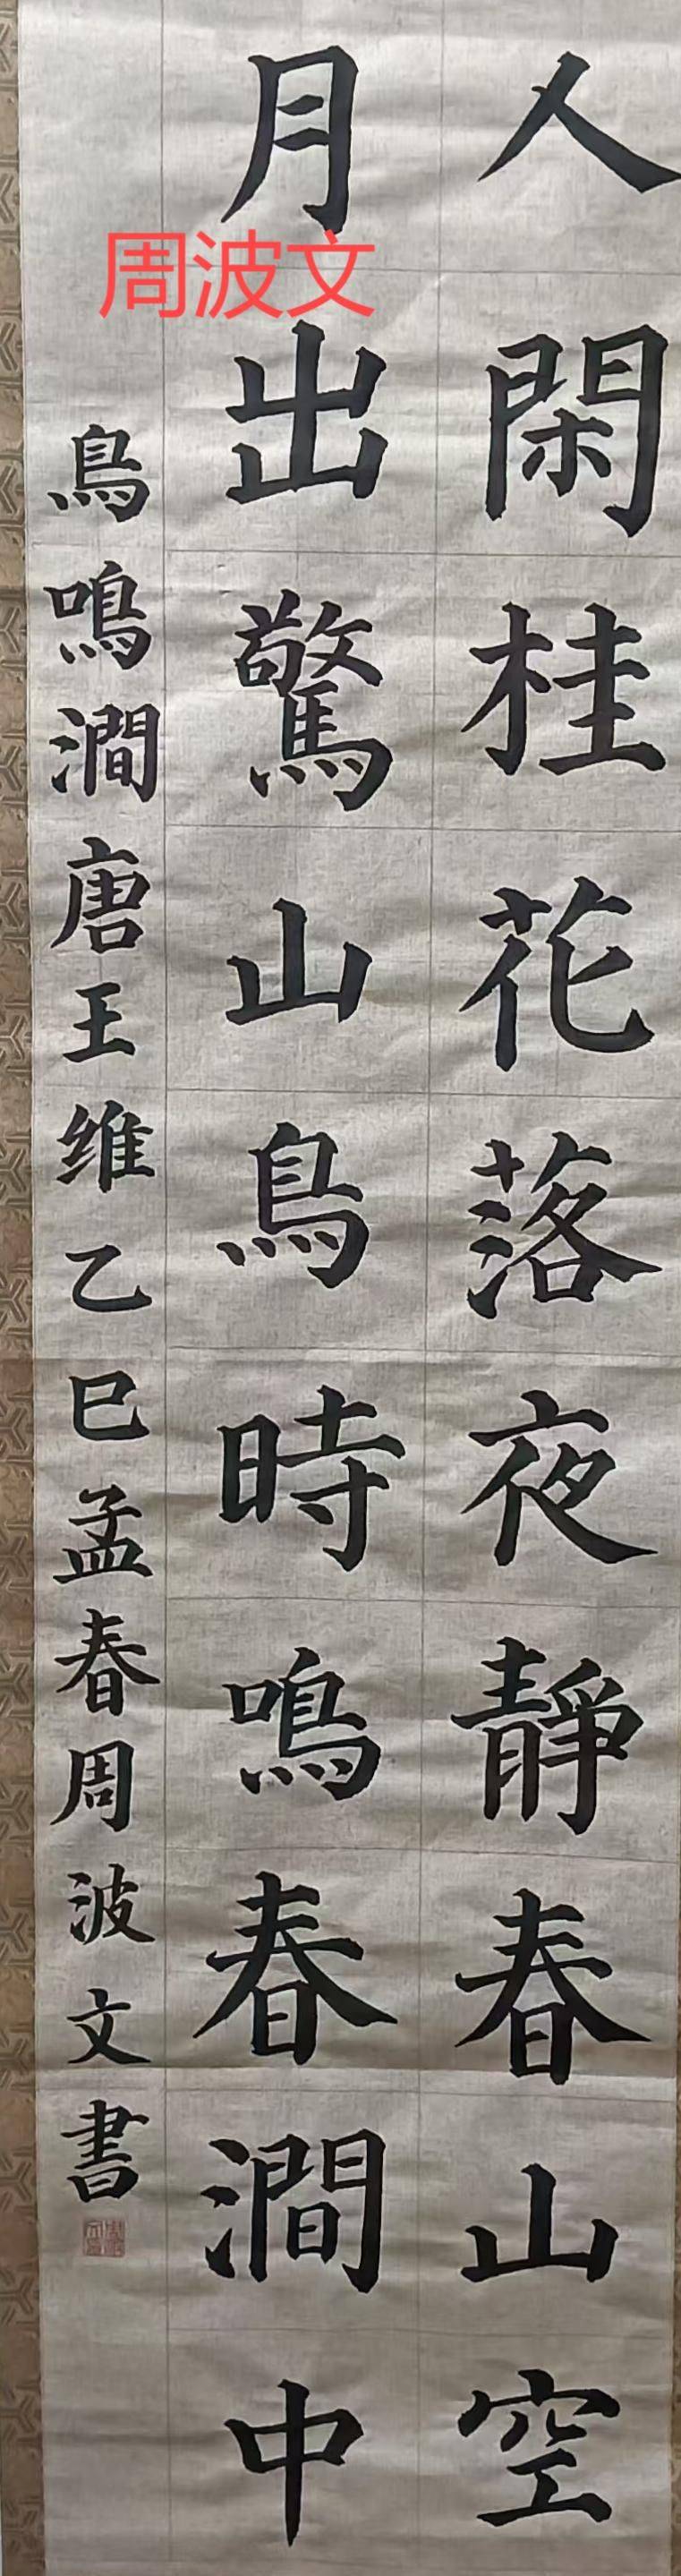 人閑桂花落夜靜春山空
月出驚山鳥時鳴春澗中
鳥鳴澗唐王维乙巳孟春周波文書
周波文